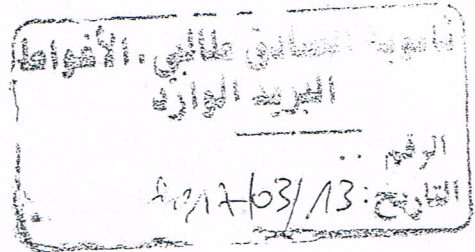 ثانوية الصادق طالبي . الأغواط
البريد الوارد
الرقم ..
التاريخ: 2017/03/13